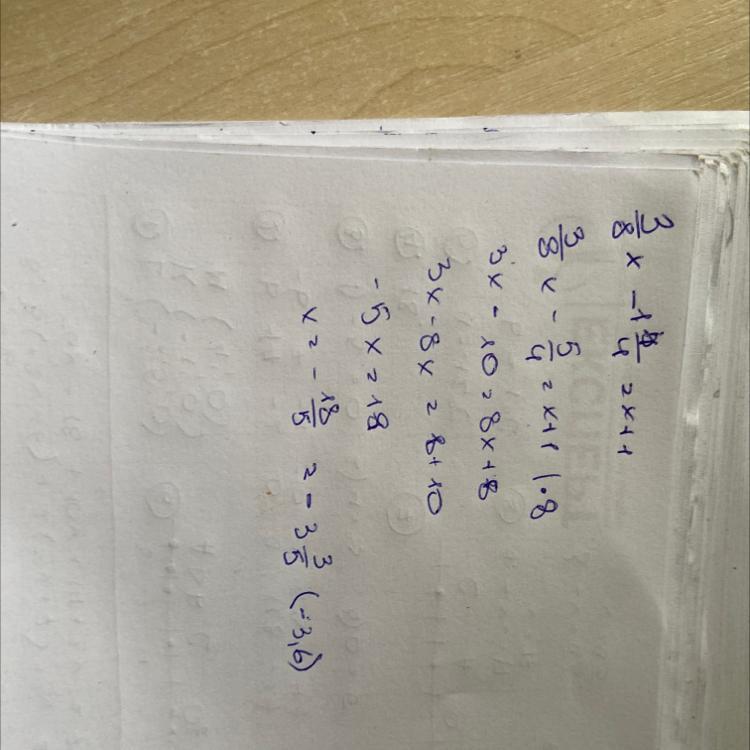 3/8 x - 1 1/4 = x+1
3/8 x - 5/4 = x+1 |·8
3x - 10 = 8x+8
3x - 8x = 8+10
-5x = 18
x = - 18/5 = - 3 3/5 (-3,6)